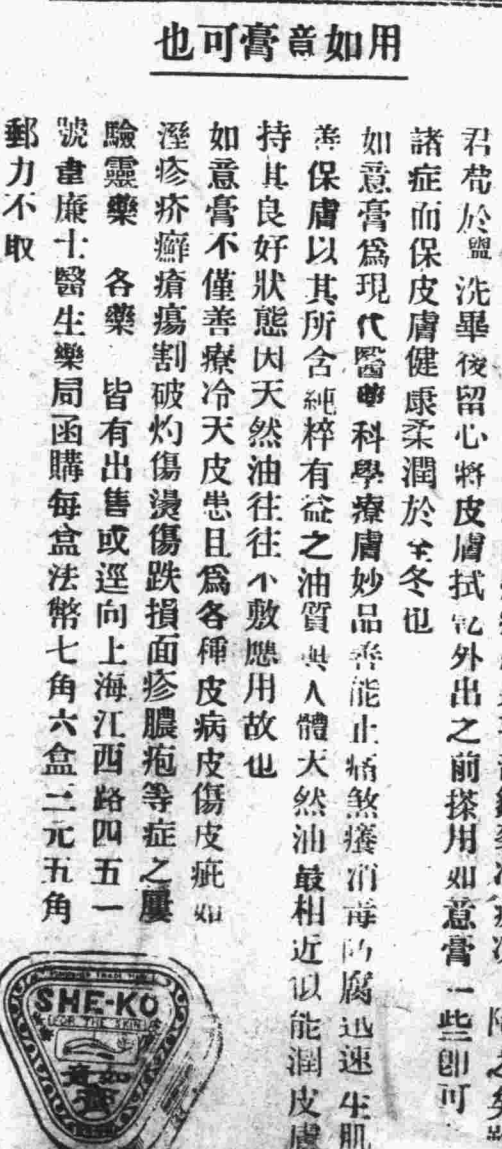 用如意膏可也
君苟於盥洗畢後留心將皮膚拭乾外出之前搽用如意膏一些卽可
諸症而保皮膚健康柔潤於全冬也
如意膏爲現代醫藥科學療膚妙品善能止痛煞癢消毒防腐迅速生肌
善保膚以其所含純粹有益之油質與人體天然油最相近似能潤皮膚
持其良好狀態因天然油往往不敷應用故也
如意膏不僅善療冷天皮患且爲各種皮病皮傷皮疵如
溼疹疥癬瘡瘍割破灼傷燙傷跌損面疹膿疱等症之屢
驗靈藥 各藥 皆有出售或逕向上海江西路四五一
號韋廉士醫生藥局函購每盒法幣七角六盒三元五角
郵力不取
SHE-KO
FOR THE SKIN
如意
膏